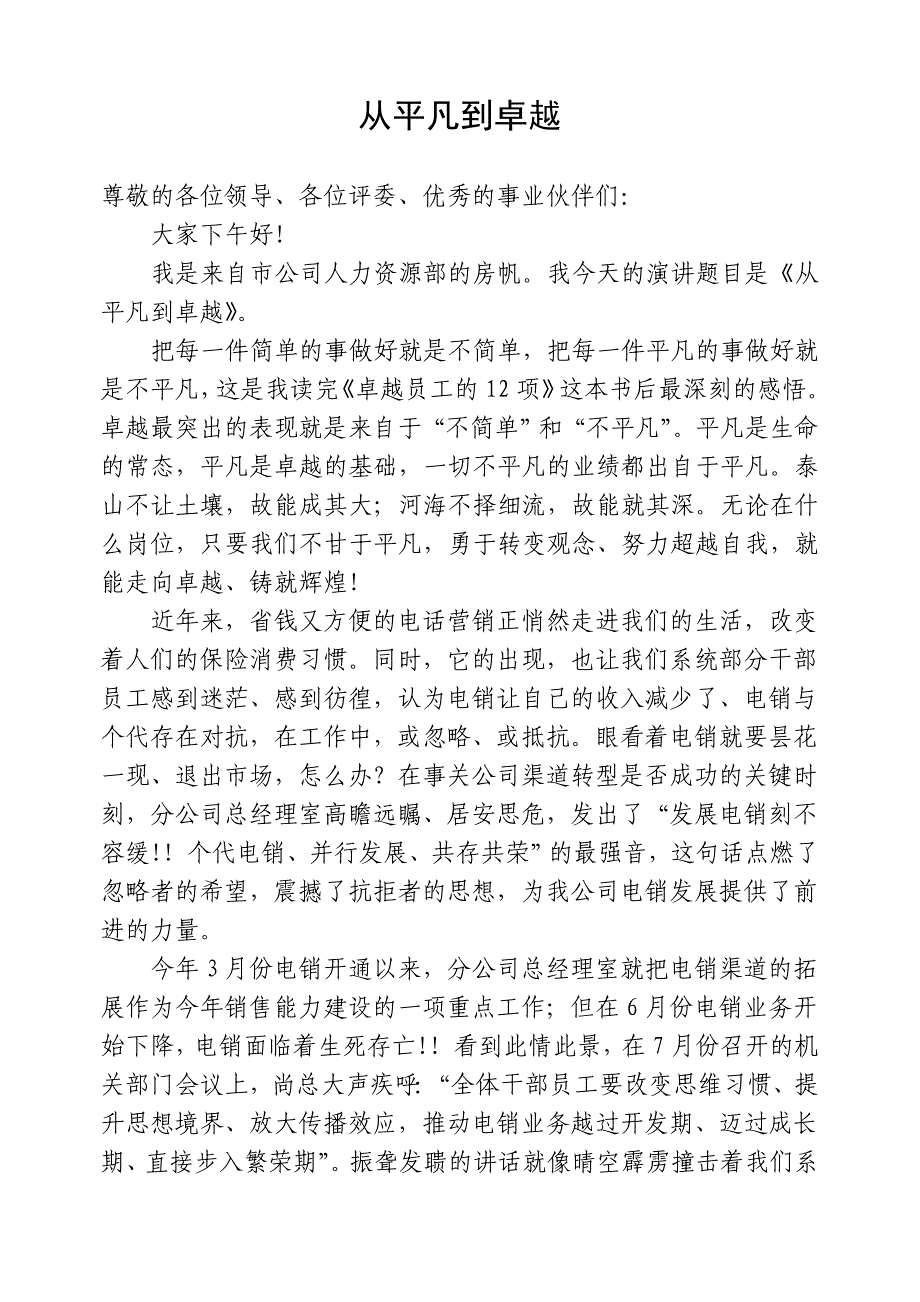 从平凡到卓越
尊敬的各位领导、各位评委、优秀的事业伙伴们：
大家下午好！
我是来自市公司人力资源部的房帆。我今天的演讲题目是《从
平凡到卓越》。
把每一件简单的事做好就是不简单，把每一件平凡的事做好就
是不平凡，这是我读完《卓越员工的 12 项》这本书后最深刻的感悟。
卓越最突出的表现就是来自于“不简单”和“不平凡”。平凡是生命
的常态，平凡是卓越的基础，一切不平凡的业绩都出自于平凡。泰
山不让土壤，故能成其大；河海不择细流，故能就其深。无论在什
么岗位，只要我们不甘于平凡，勇于转变观念、努力超越自我，就
能走向卓越、铸就辉煌！
近年来，省钱又方便的电话营销正悄然走进我们的生活，改变
着人们的保险消费习惯。同时，它的出现，也让我们系统部分干部
员工感到迷茫、感到彷徨，认为电销让自己的收入减少了、电销与
个代存在对抗，在工作中，或忽略、或抵抗。眼看着电销就要昙花
一现、退出市场，怎么办？在事关公司渠道转型是否成功的关键时
刻，分公司总经理室高瞻远瞩、居安思危，发出了“发展电销刻不
容缓！！个代电销、并行发展、共存共荣”的最强音，这句话点燃了
忽略者的希望，震撼了抗拒者的思想，为我公司电销发展提供了前
进的力量。
今年 3 月份电销开通以来，分公司总经理室就把电销渠道的拓
展作为今年销售能力建设的一项重点工作；但在 6 月份电销业务开
始下降，电销面临着生死存亡！！看到此情此景，在 7 月份召开的机
关部门会议上，尚总大声疾呼：“全体干部员工要改变思维习惯、提
升思想境界、放大传播效应，推动电销业务越过开发期、迈过成长
期、直接步入繁荣期”。振聋发聩的讲话就像晴空霹雳撞击着我们系